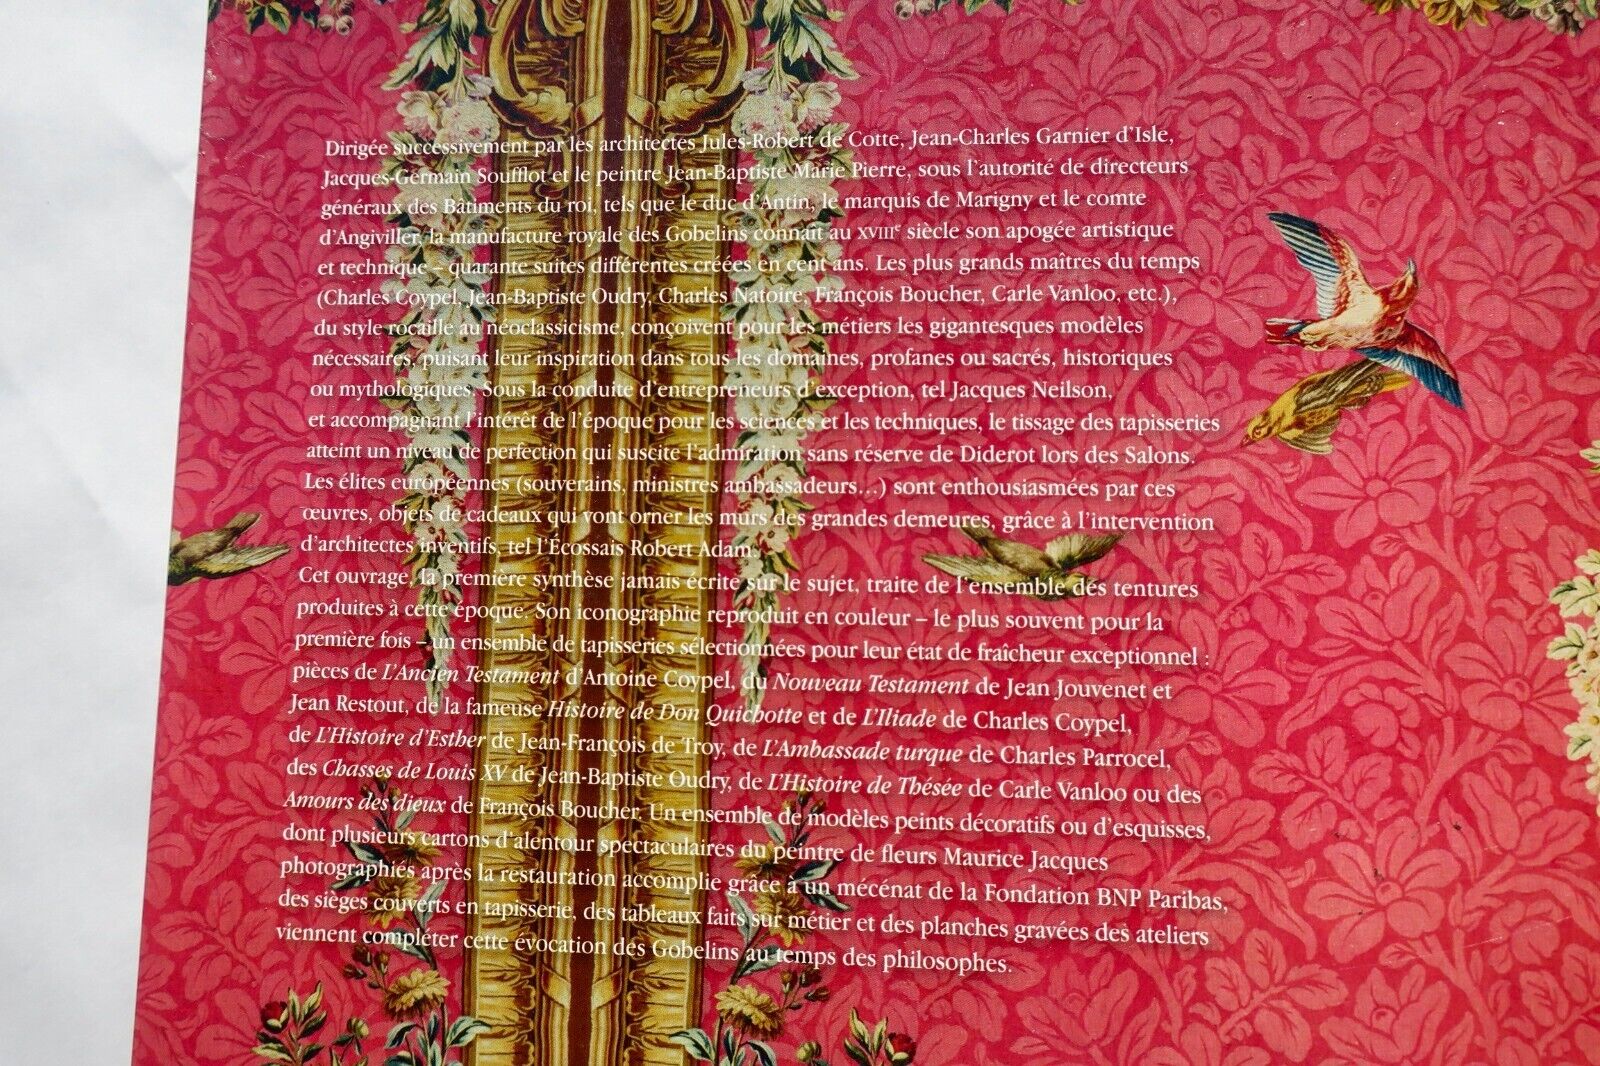 Dirigée successivement par les architectes Jules-Robert de Cotte, Jean-Charles Garnier d'Isle,
Jacques-Germain Soufflot et le peintre Jean-Baptiste Marie Pierre, sous l'autorité de directeurs
généraux des Bâtiments du roi, tels que le duc d'Antin, le marquis de Marigny et le comte
d'Angiviller, la manufacture royale des Gobelins connaît au XVIIIe siècle son apogée artistique
et technique – quarante suites différentes créées en cent ans. Les plus grands maîtres du temps
(Charles Coypel, Jean-Baptiste Oudry, Charles Natoire, François Boucher, Carle Vanloo, etc.),
du style rocaille au néoclassicisme, conçoivent pour les métiers les gigantesques modèles
nécessaires, puisant leur inspiration dans tous les domaines, profanes ou sacrés, historiques
ou mythologiques. Sous la conduite d'entrepreneurs d'exception, tel Jacques Neilson,
et accompagnant l'intérêt de l'époque pour les sciences et les techniques, le tissage des tapisseries
atteint un niveau de perfection qui suscite l'admiration sans réserve de Diderot lors des Salons.
Les élites européennes (souverains, ministres ambassadeurs…) sont enthousiasmées par ces
œuvres, objets de cadeaux qui vont orner les murs des grandes demeures, grâce à l'intervention
d'architectes inventifs, tel l'Écossais Robert Adam.
Cet ouvrage, la première synthèse jamais écrite sur le sujet, traite de l'ensemble des tentures
produites à cette époque. Son iconographie reproduit en couleur – le plus souvent pour la
première fois – un ensemble de tapisseries sélectionnées pour leur état de fraîcheur exceptionnel :
pièces de L'Ancien Testament d'Antoine Coypel, du Nouveau Testament de Jean Jouvenet et
Jean Restout, de la fameuse Histoire de Don Quichotte et de L'Iliade de Charles Coypel,
de L'Histoire d'Esther de Jean-François de Troy, de L'Ambassade turque de Charles Parrocel,
des Chasses de Louis XV de Jean-Baptiste Oudry, de L'Histoire de Thésée de Carle Vanloo ou des
Amours des dieux de François Boucher. Un ensemble de modèles peints décoratifs ou d'esquisses,
dont plusieurs cartons d'alentour spectaculaires du peintre de fleurs Maurice Jacques
photographiés après la restauration accomplie grâce à un mécénat de la Fondation BNP Paribas,
des sièges couverts en tapisserie, des tableaux faits sur métier et des planches gravées des ateliers
viennent compléter cette évocation des Gobelins au temps des philosophes.